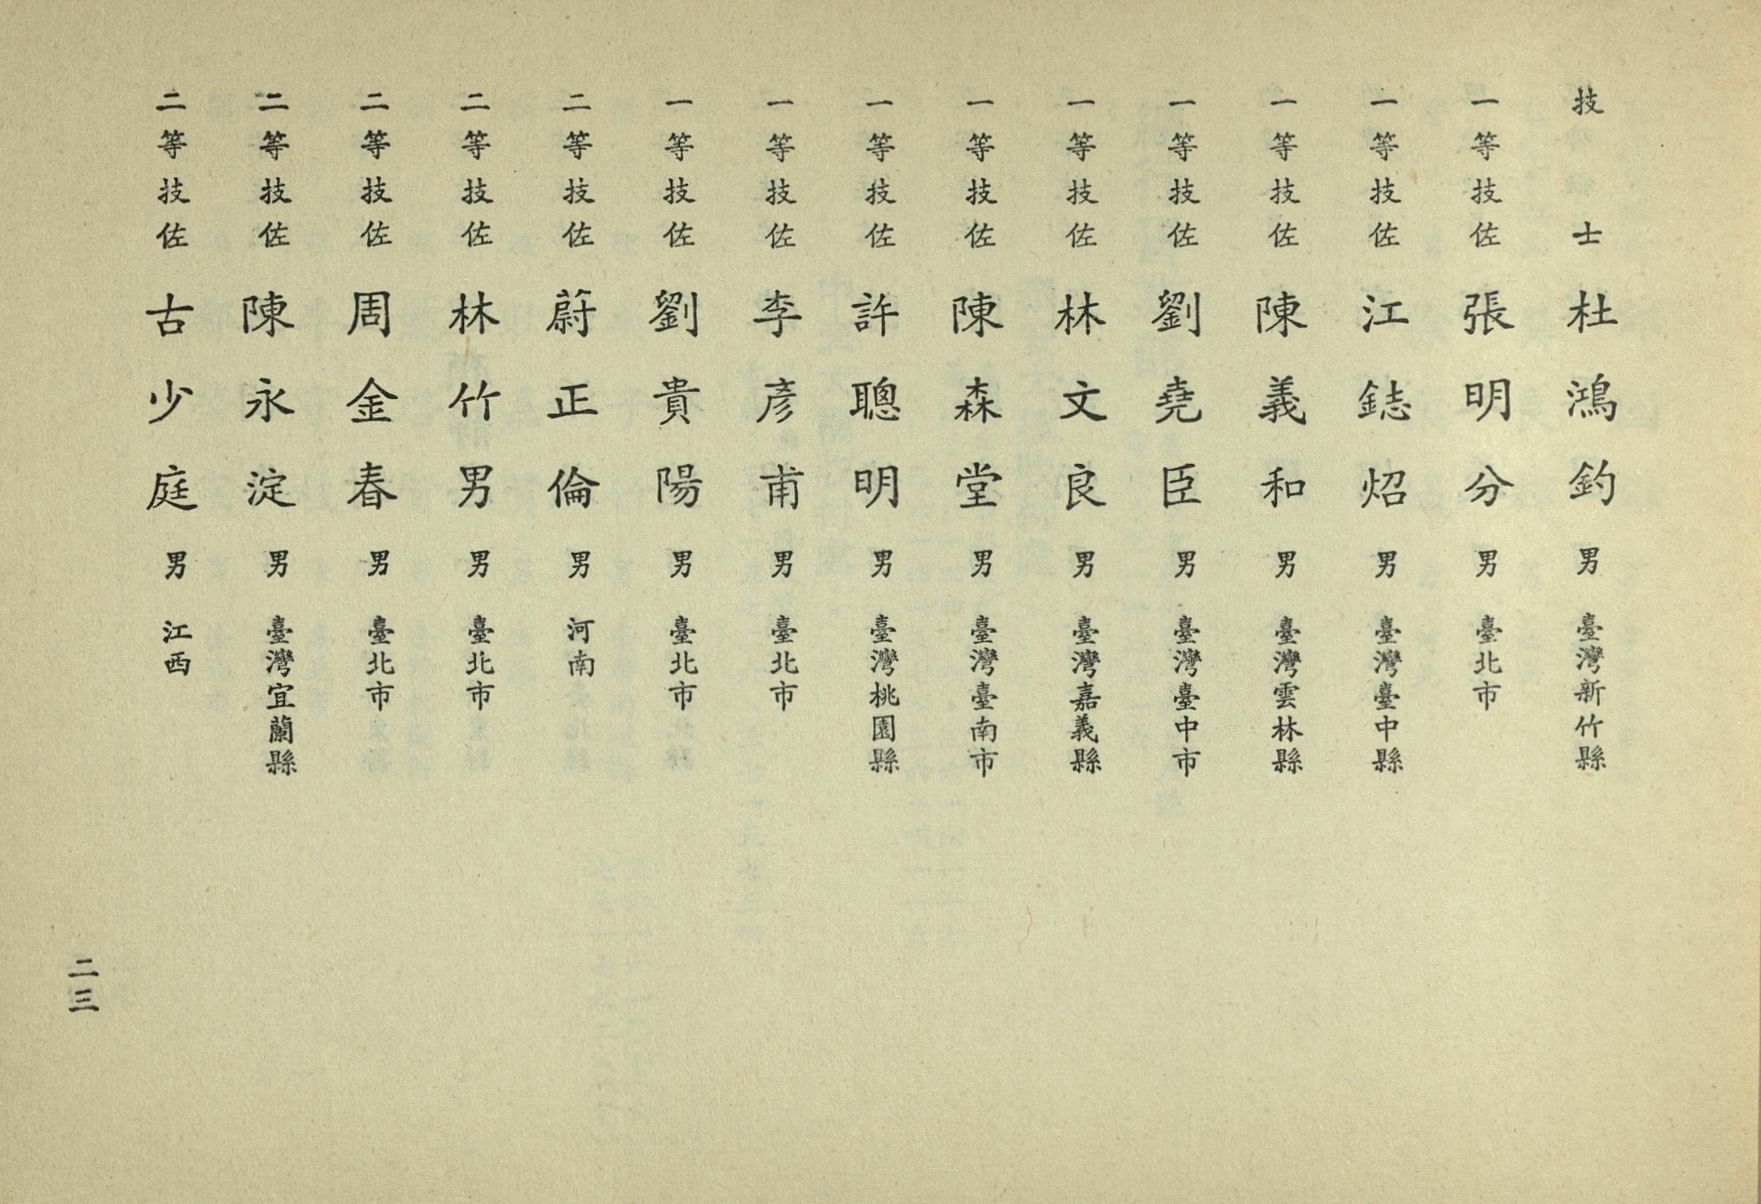 技士 杜鴻鈞 男 臺灣新竹縣
一等技佐 張明分 男 臺北市
一等技佐 江鋕炤 男 臺灣臺中縣
一等技佐 陳義和 男 臺灣雲林縣
一等技佐 劉堯臣 男 臺灣臺中市
一等技佐 林文良 男 臺灣嘉義縣
一等技佐 陳森堂 男 臺灣臺南市
一等技佐 許聰明 男 臺灣桃園縣
一等技佐 李彥甫 男 臺北市
一等技佐 劉貴陽 男 臺北市
二等技佐 蔚正倫 男 河南
二等技佐 林竹男 男 臺北市
二等技佐 周金春 男 臺北市
二等技佐 陳永淀 男 臺灣宜蘭縣
二等技佐 古少庭 男 江西
二三